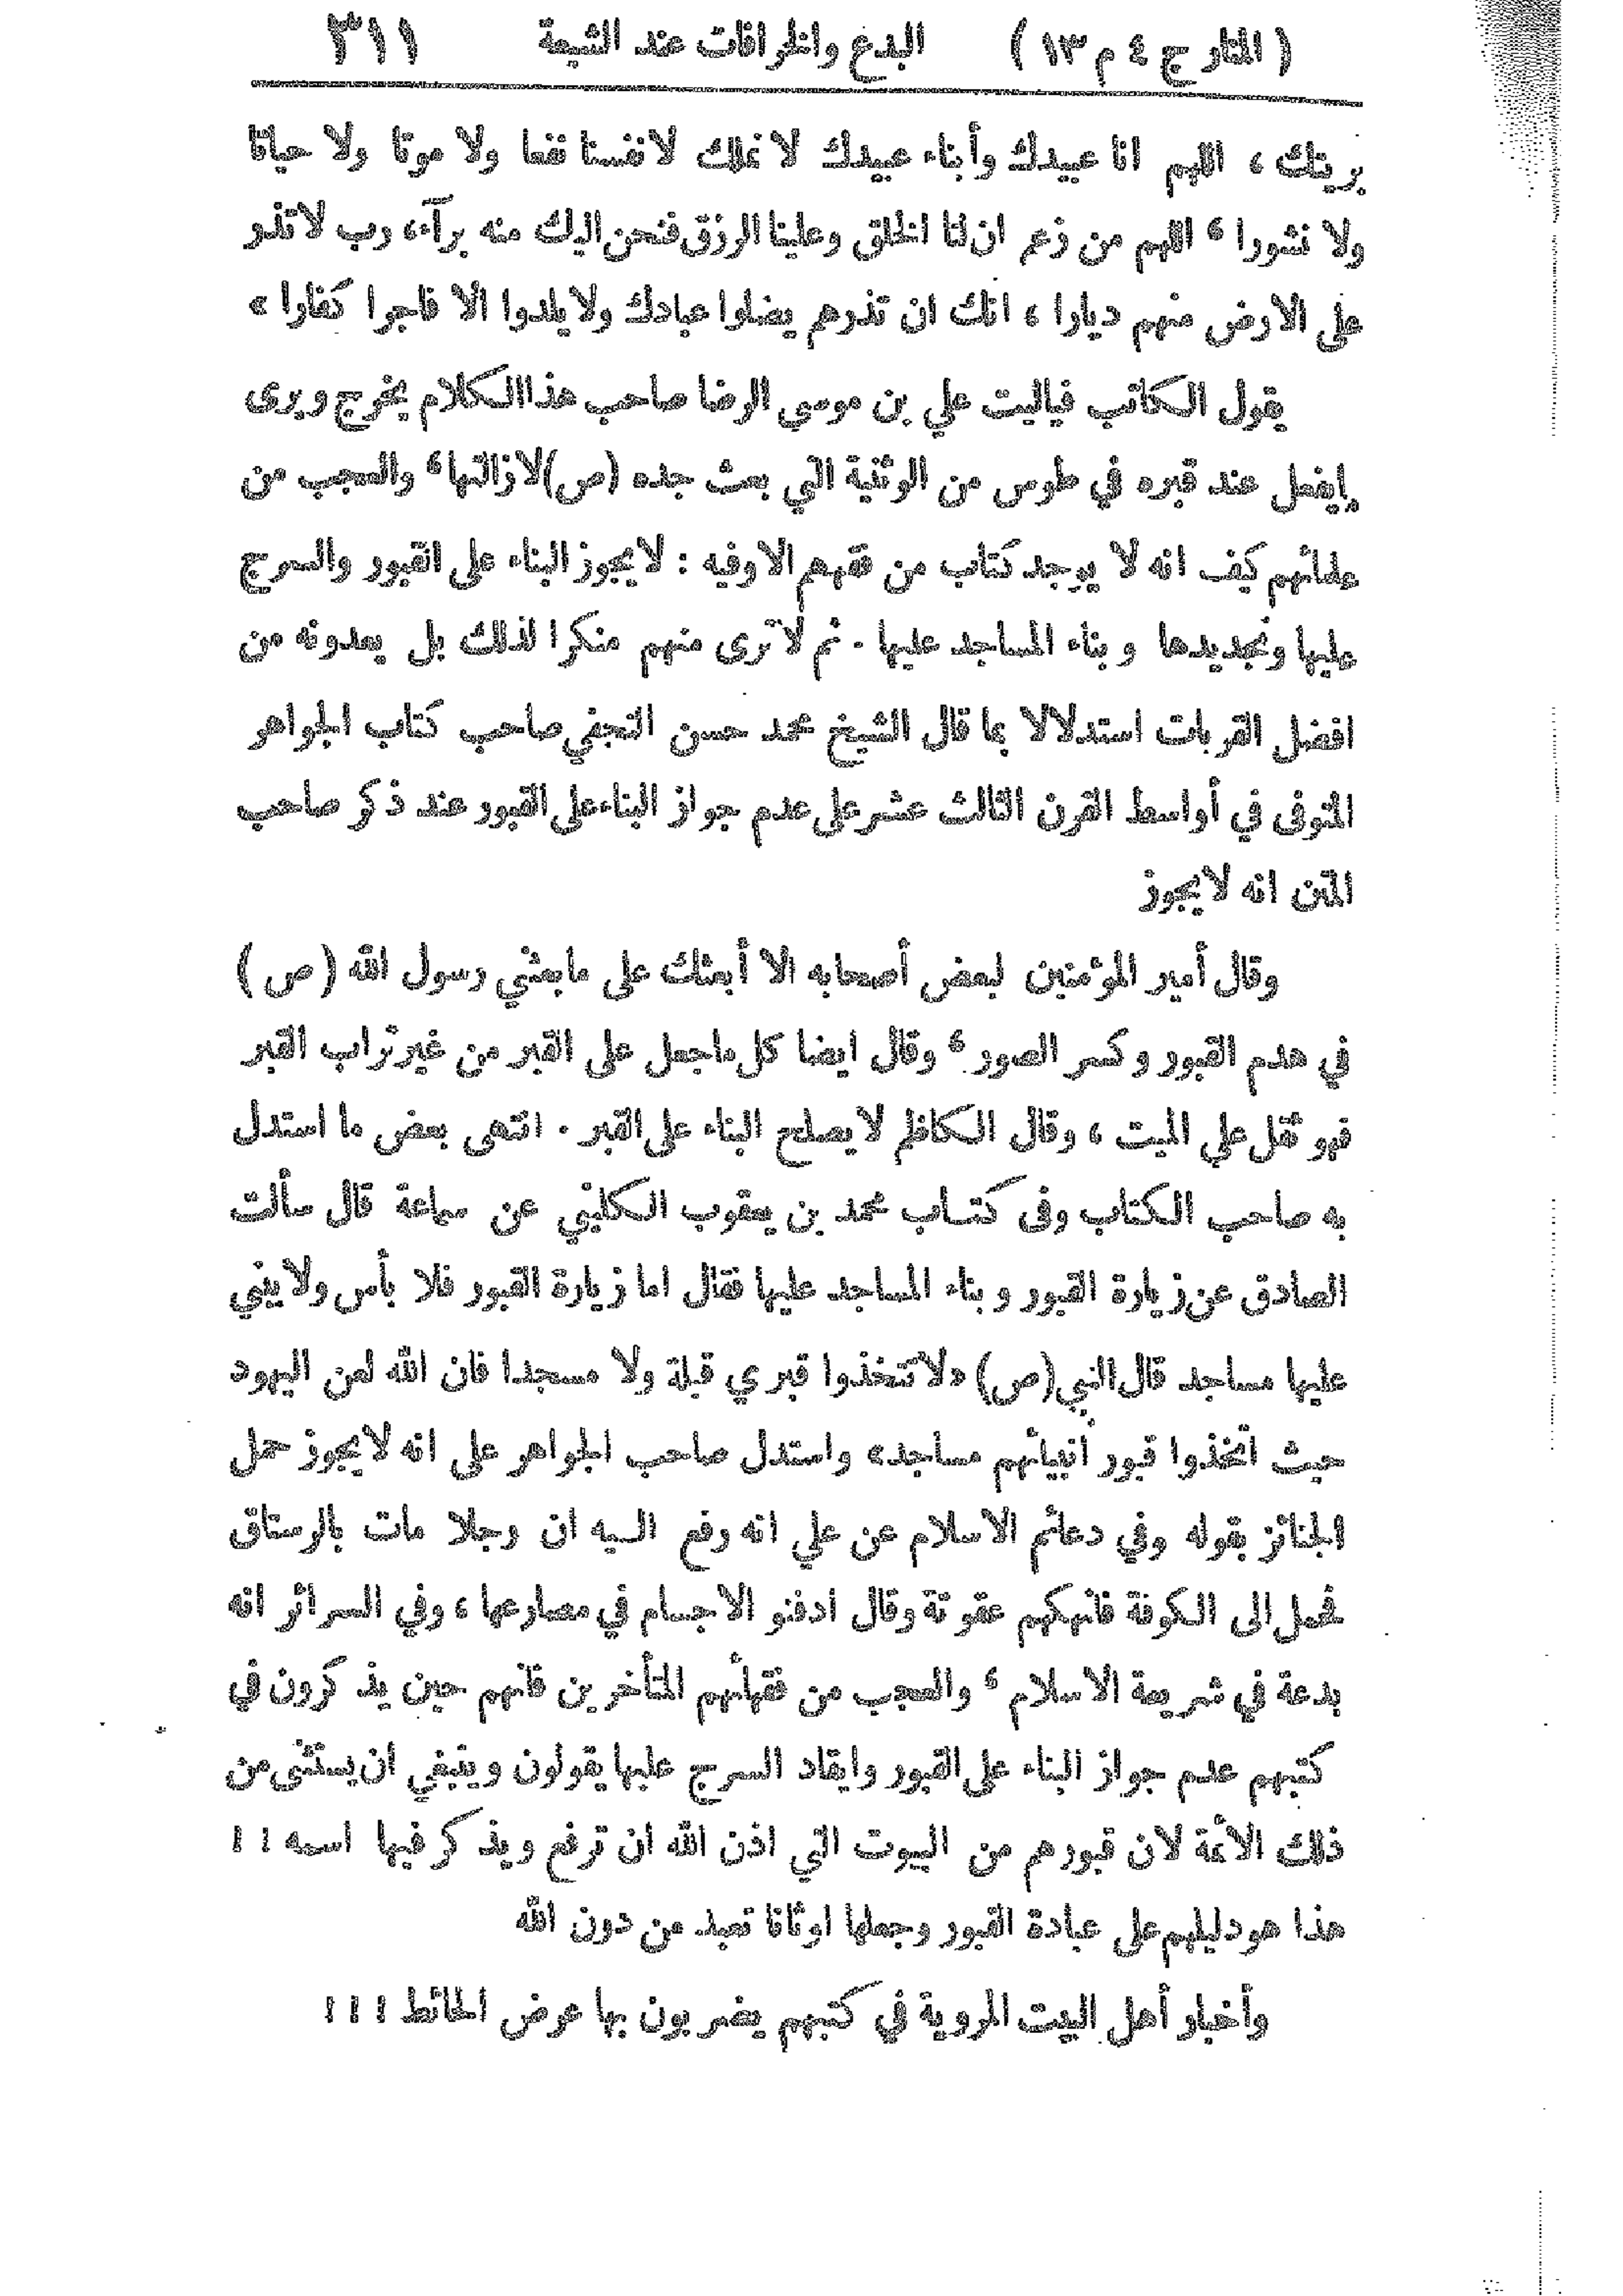 ( المنار ج ٤ م ١٣ ) البدع والخرافات عند الشيعة ٣١١
بريتك ، اللهم انا عبيدك وأبناء عبيدك لا نملك لانفسنا نفعا ولا موتا ولا حياتا
ولا نشورا ، اللهم من زعم ان لنا الخلق وعلينا الرزق فنحن اليك منه برآء، رب لا تذر
على الارض منهم ديارا ، انك ان تذرهم يضلوا عبادك ولا يلدوا الا فاجرا كفارا »
يقول الكاتب فياليت علي بن موسى الرضا صاحب هذا الكلام يخرج ويرى
مايفعل عند قبره في طوس من الوثنية التي بعث جده (ص) لازالتها ، والعجب من
علمائهم كيف انه لا يوجد كتاب من فقههم الا وفيه : لا يجوز البناء على القبور والسرج
عليها وتجديدها وبناء المساجد عليها . ثم لا ترى منهم منكرا لذلك بل يعدونه من
افضل القربات استدلالا بما قال الشيخ محمد حسن النجفي صاحب كتاب الجواهر
المتوفى في أواسط القرن الثالث عشر على عدم جواز البناء على القبور عند ذكر صاحب
المتن انه لا يجوز
وقال أمير المؤمنين لبعض أصحابه الا أبعثك على ما بعثني رسول الله ( ص )
في هدم القبور وكسر الصور ، وقال ايضا كل ماجعل على القبر من غير تراب القبر
فهو ثقل علي الميت ، وقال الكاظم لا يصلح البناء على القبر . انتهى بعض ما استدل
به صاحب الكتاب وفى كتاب محمد بن يعقوب الكليني عن سماعة قال سألت
الصادق عن زيارة القبور وبناء المساجد عليها فقال اما زيارة القبور فلا بأس ولا يبني
عليها مساجد قال النبي (ص) «لا تتخذوا قبري قبلة ولا مسجدا فان الله لعن اليهود
حيث اتخذوا قبور أنبيائهم مساجد» واستدل صاحب الجواهر على انه لا يجوز حمل
الجنائز بقوله وفي دعائم الاسلام عن علي انه رفع اليه ان رجلا مات بالرستاق
فحمل الى الكوفة فانهكهم عقوبة وقال ادفنو الاجسام في مصارعها ، وفي السرائر انه
بدعة في شريعة الاسلام ، والعجب من فقهائهم المتأخرين فانهم حين يذكرون في
كتبهم عدم جواز البناء على القبور وايقاد السرج عليها يقولون وينبغي ان يستثنى من
ذلك الائمة لان قبورهم من البيوت التي اذن الله ان ترفع ويذكر فيها اسمه ! !
هذا هو دليلهم على عبادة القبور وجعلها اوثانا تعبد من دون الله
وأخبار أهل البيت المروية في كتبهم يضربون بها عرض الحائط ! ! !